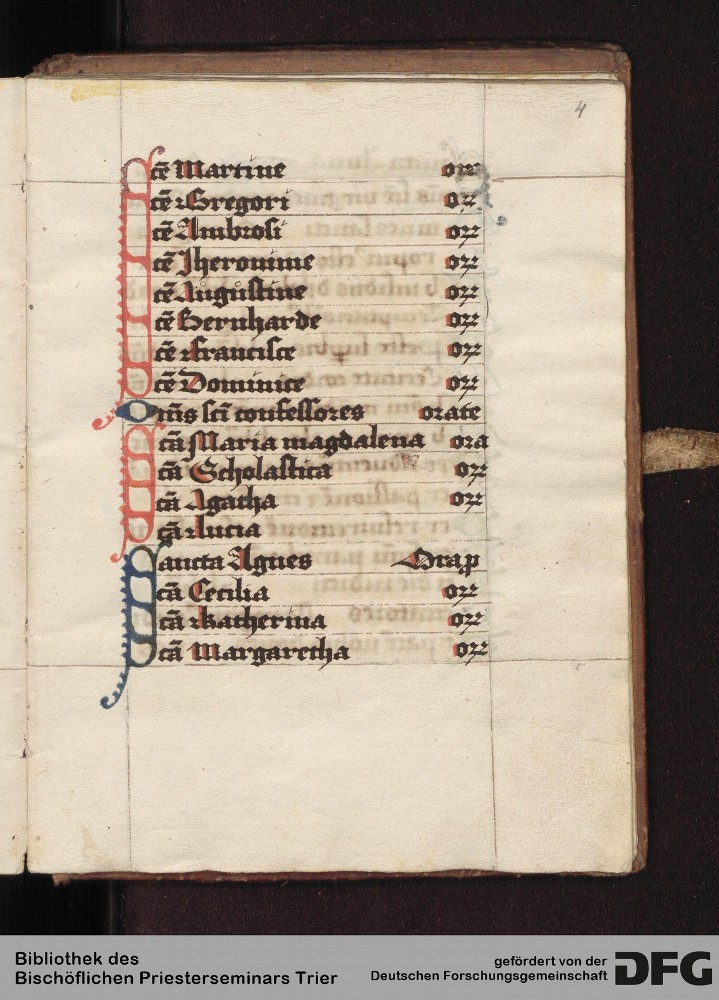 4
Scē Martine orᷓ
Scē Gregori or̃
Scē Ambrosi or̃
Scē Jheronime or̃
Scē Augustine or̃
Scē Bernharde or̃
Scē Francisce or̃
Scē Dominice or̃
Om̄s sc̄i confessores orate
Scā Maria magdalena ora
Scā Scholastica or̃
Scā Agatha or̃
Scā Lucia
Sancta Agnes Ora p̄
Scā Cecilia or̃
Scā Katherina or̃
Scā Margaretha or̃
Bibliothek des
Bischöflichen Priesterseminars Trier
gefördert von der
Deutschen Forschungsgemeinschaft
DFG